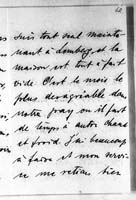 suis tout seul mainte-
nant à Lombez et la
maison est tout à fait
vide. C'est le mois le
plus désagréable dans
notre pays où il fait
de temps à autre chaud
et froid. J'ai beaucoup
à faire et mon servi-
ce me retient bien